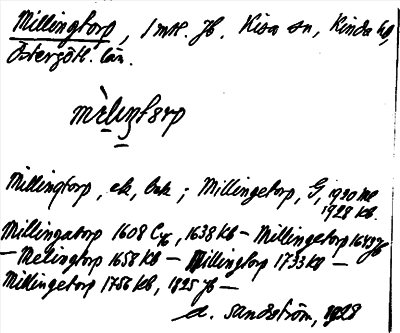 Millingtorp, 1 mtl. Jb. Kisa sn, Kinda hd,
Östergötl. län.
Millingtorp, ek, luk; Millingetorp, G, 1920
1928 kb.
Millingatorp 1608 1638 Kb – Millingetorp 1643 Jb
– Melingtorp 1658 Kb – Millingtorp 1733 Kb –
Millingetorp 1756 Kb, 1825 Jb –
A. Sandström, 1928